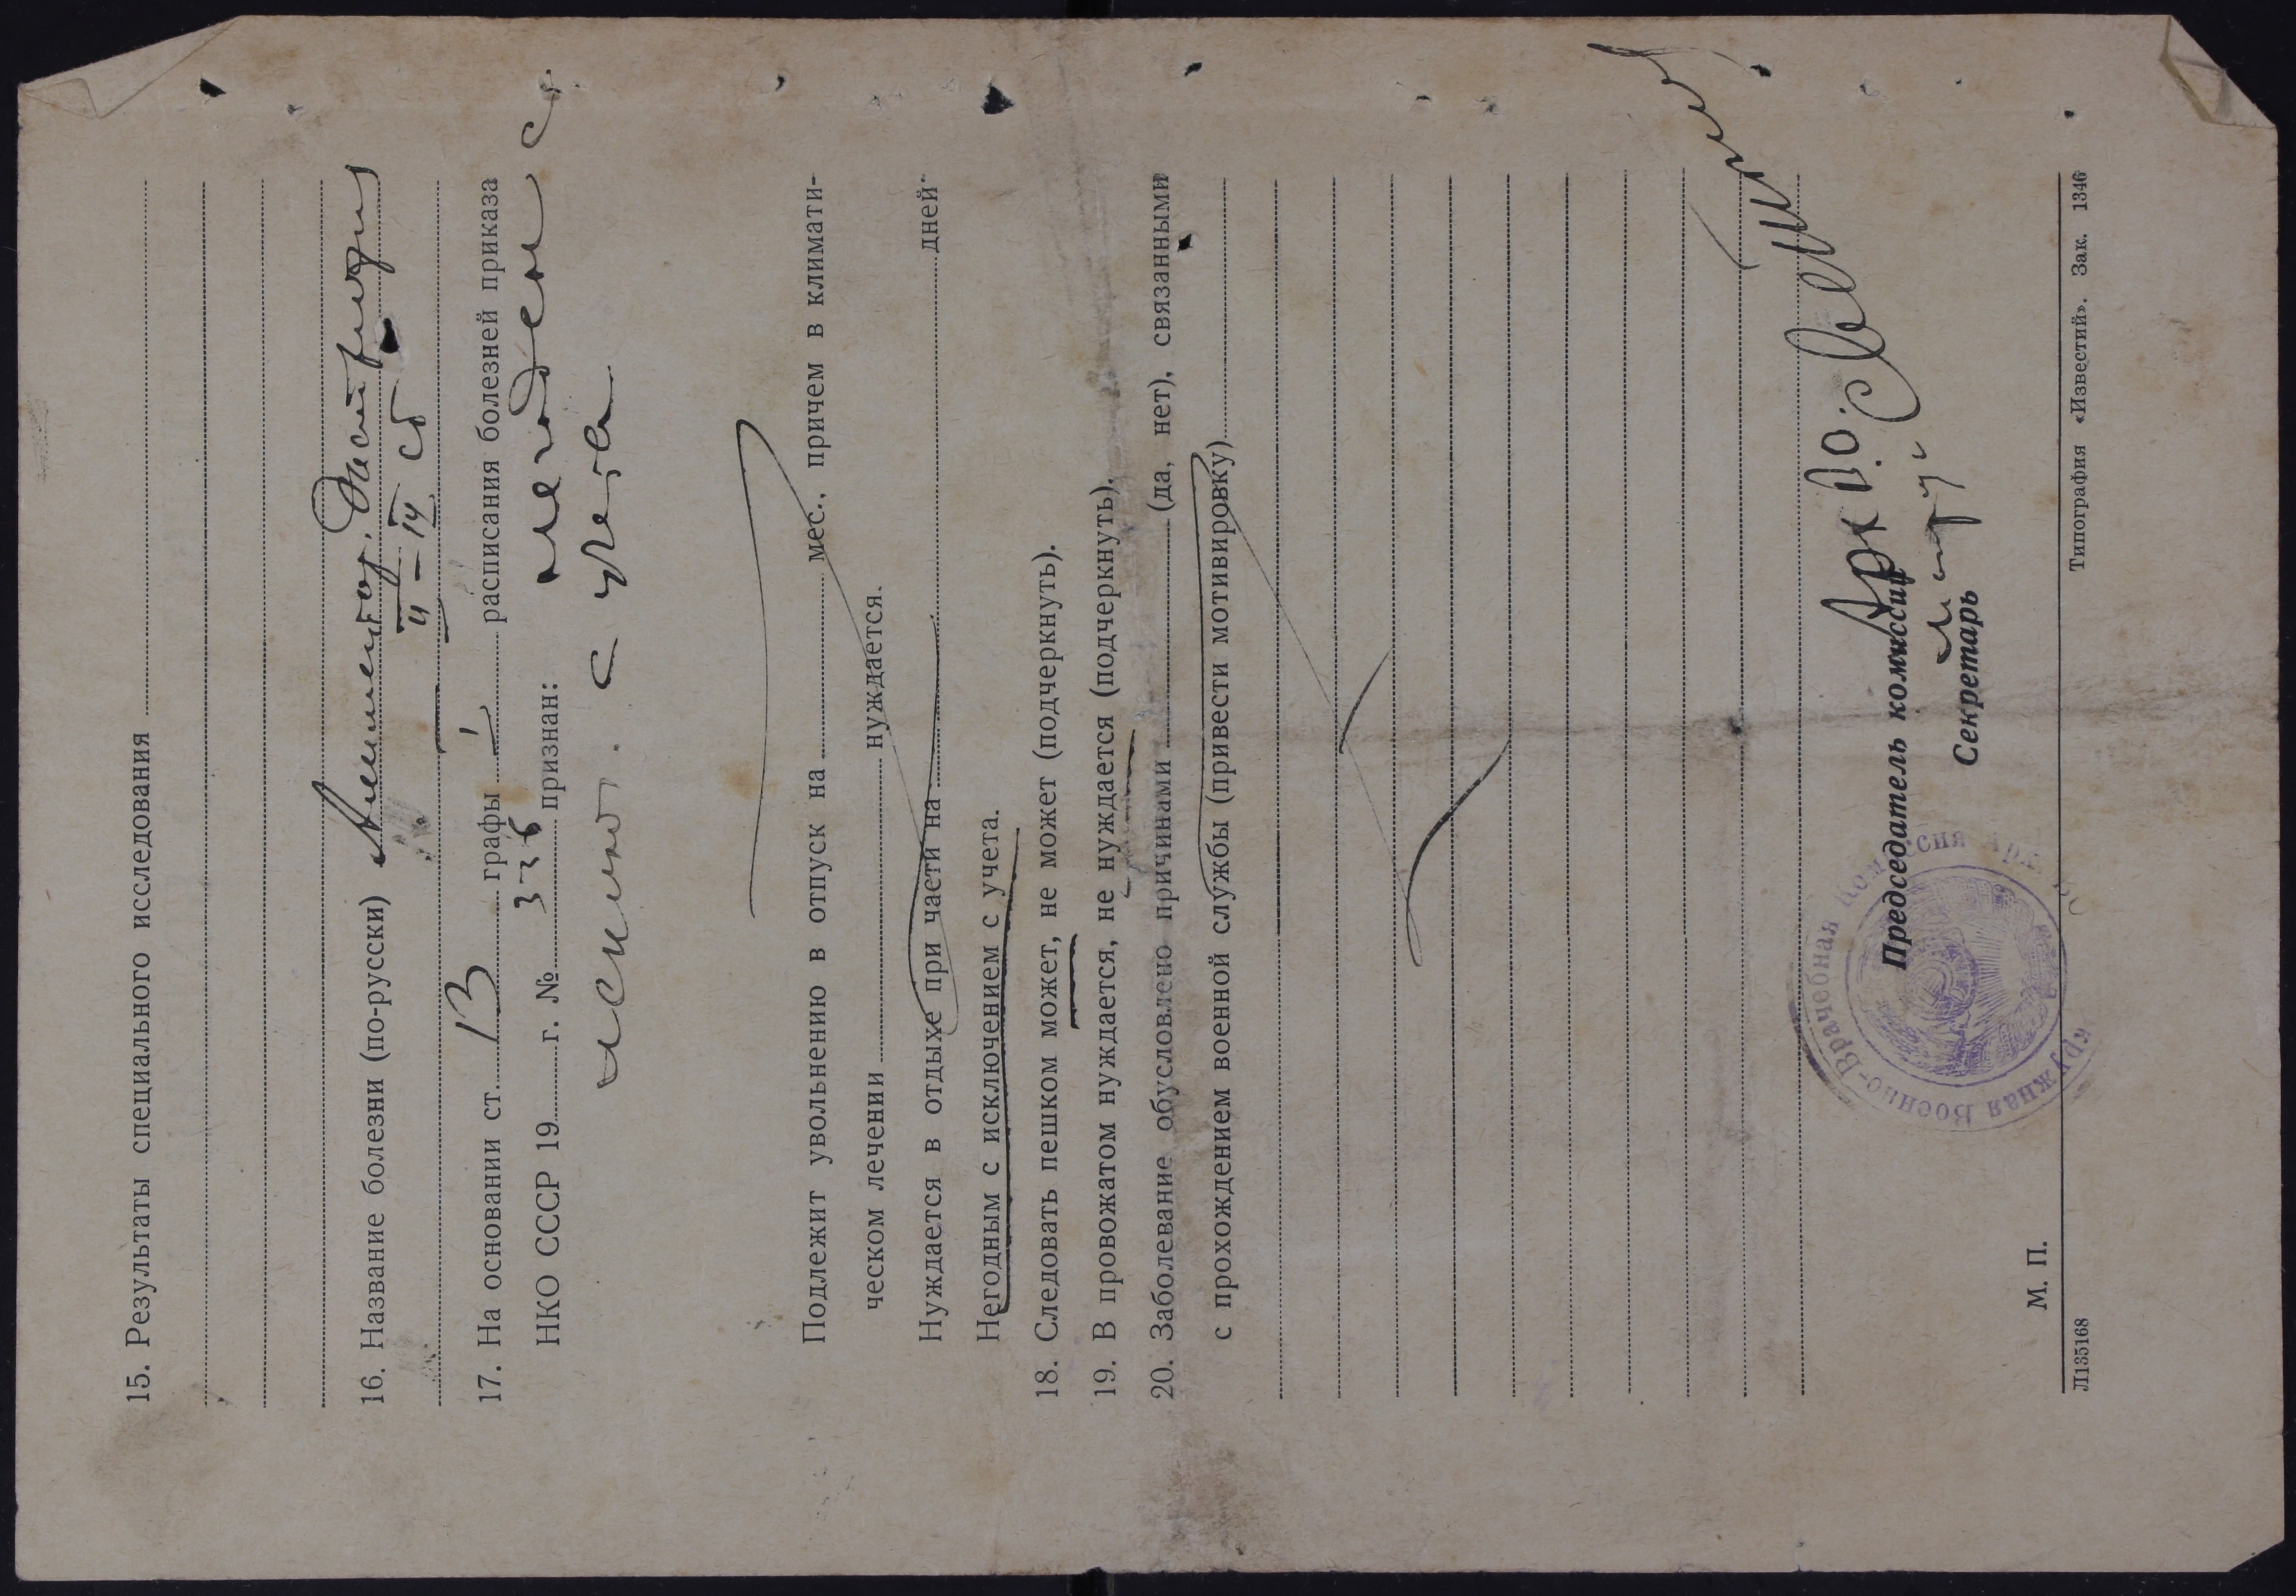 15. Результаты специального исследования
16. Название болезни (по-русски) Алиментар. Дистрофия
II – IV ст
17. На основании ст. 13 графы 1 расписания болезней приказа
НКО СССР 19 г. № 336 признан: не годен с
исключ. с учета
Подлежит увольнению в отпуск на мес., причем в климати-
ческом лечении нуждается.
Нуждается в отдыхе при части на дней
Негодным с исключением с учета.
18. Следовать пешком может, не может (подчеркнуть).
19. В провожатом нуждается, не нуждается (подчеркнуть).
20. Заболевание обусловлено причинами (да, нет), связанными
с прохождением военной службы (привести мотивировку)
Председатель комиссии
Секретарь
М. П.
Окружная Военно-Врачебная Комиссия
Л135168 Типография «Известий». Зак. 1346